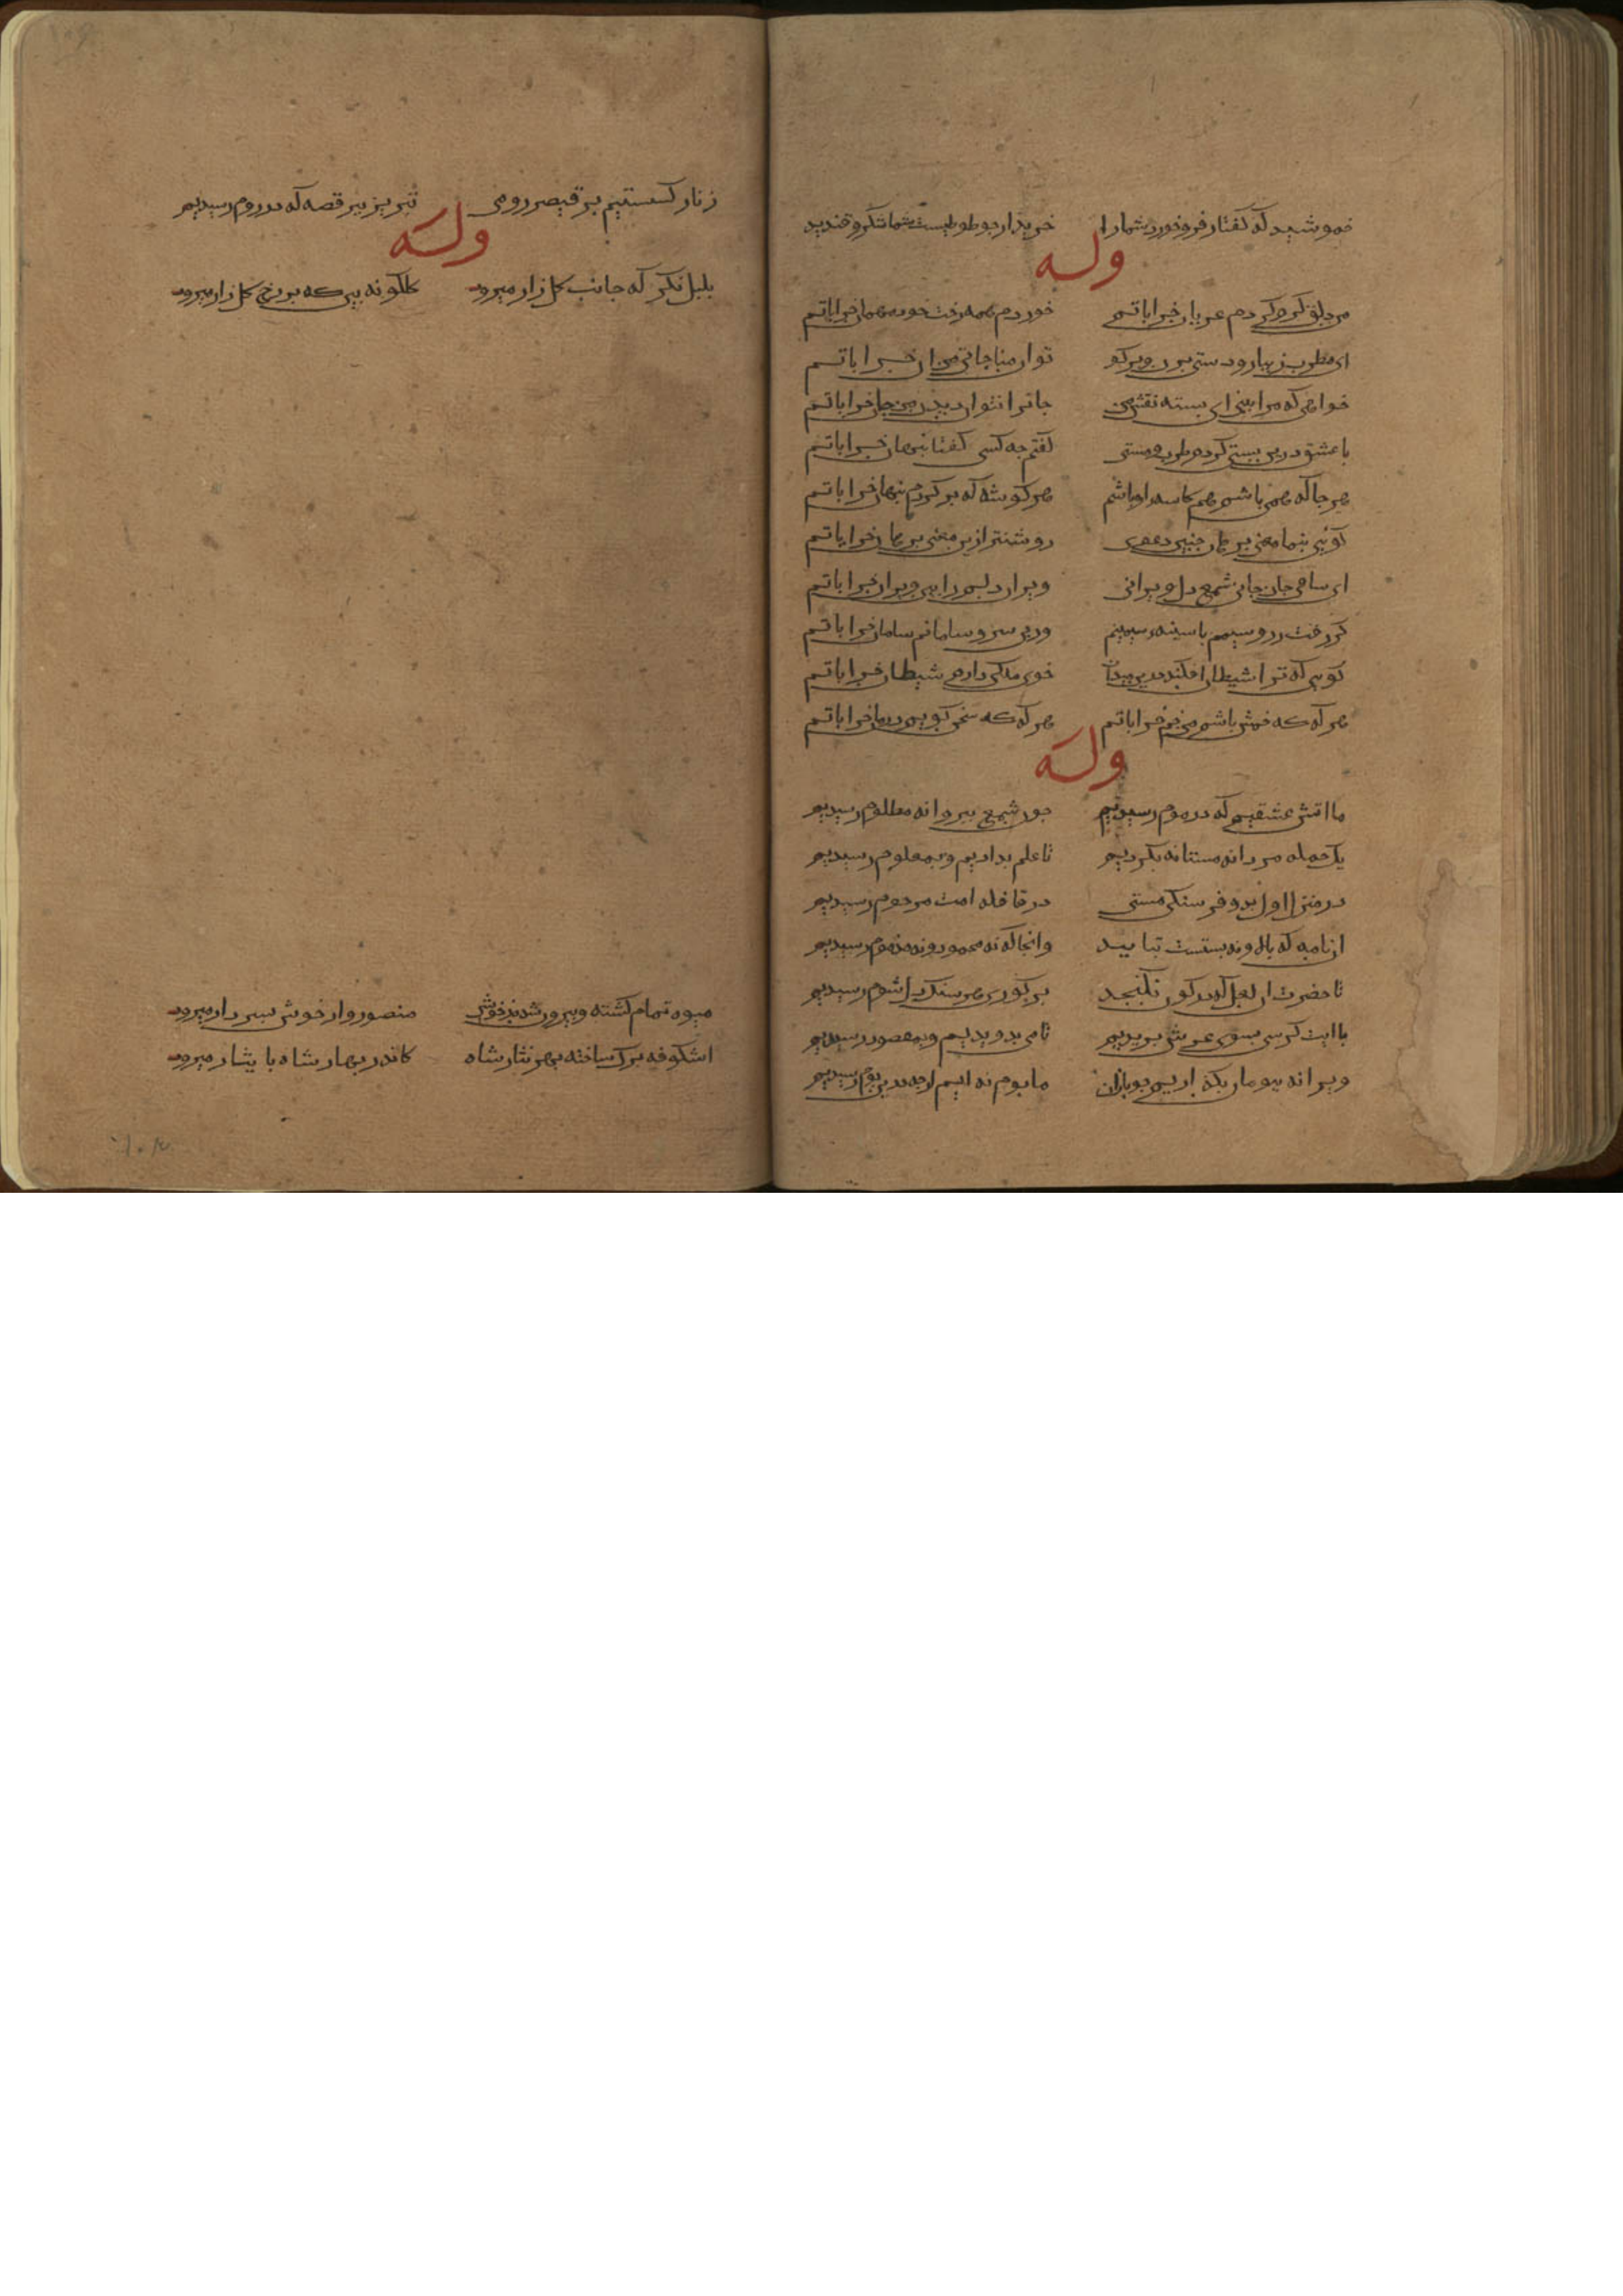 خموشید که گفتار فرو خورد شمارا خریدار جو طوطیست شما شکر و قندید
وله
من دلق گرو کردم عریان خراباتم خوردم همه رخت خود مهمان خراباتم
ای مطرب زیبا رو دستی بزن و برگو تو ان مناجاتی من ان خراباتم
خواهی که مرا بینی ای بسته نقش من جانرا نتوان دیدن من جان خراباتم
با عشق درین پستی کردم طرب و مستی گفتم جه کسی گفتا سلطان خراباتم
هر جا که همی باشم هم کاسه اوباشم هر گوشه که بر گردم پنهان خراباتم
گویی بنما معنی برهان جنین دعوی روشنتر ازین معنی برهان خراباتم
ای ساقی جان جانی شمع دل ویرانی ویران دلم را بین ویران خراباتم
گر رفت زر و سیمم با سینه سیمینم ور بی سر و سامانم سامان خراباتم
گویی که ترا شیطان افکند درین ویران خوی ملکی دارم شیطان خراباتم
هر گه که خمش باشم من خم خراباتم هر گه که سخن گویم دربان خراباتم
وله
ما اتش عشقیم که در موم رسیدیم جون شمع بپروانه مظلوم رسیدیم
یک حمله مردانه مستانه بکردیم تا علم بدادیم و بمعلوم رسیدیم
در منزل اول بدو فرسنگی مستی در قافله امت مرحوم رسیدیم
ان مه که نه بالا و نه پستست بتابید وانجا که نه محمود و نه مذموم رسیدیم
تا حضرت ان لعل که در کون نگنجد بر کوری هر سنگ دل شوم رسیدیم
با ایت کرسی بسوی عرش پریدیم تا حی بدیدیم و بقیوم رسیدیم
ویرانه ببومان بگذاریم جو بازان ما بوم نه ایم ارجه درین بوم رسیدیم
زنار گسستیم بر قیصر رومی تبریز ببر قصه که در روم رسیدیم
وله
بلبل نگر که جانب گل زار میرود گلگونه بین که بر رخ گل زار میرود
میوه تمام گشته و بیرون شده ز خویش منصور وار خوش بسر دار میرود
اشکوفه برگ ساخته بهر نثار شاه کاندر بهار شاه بایثار میرود